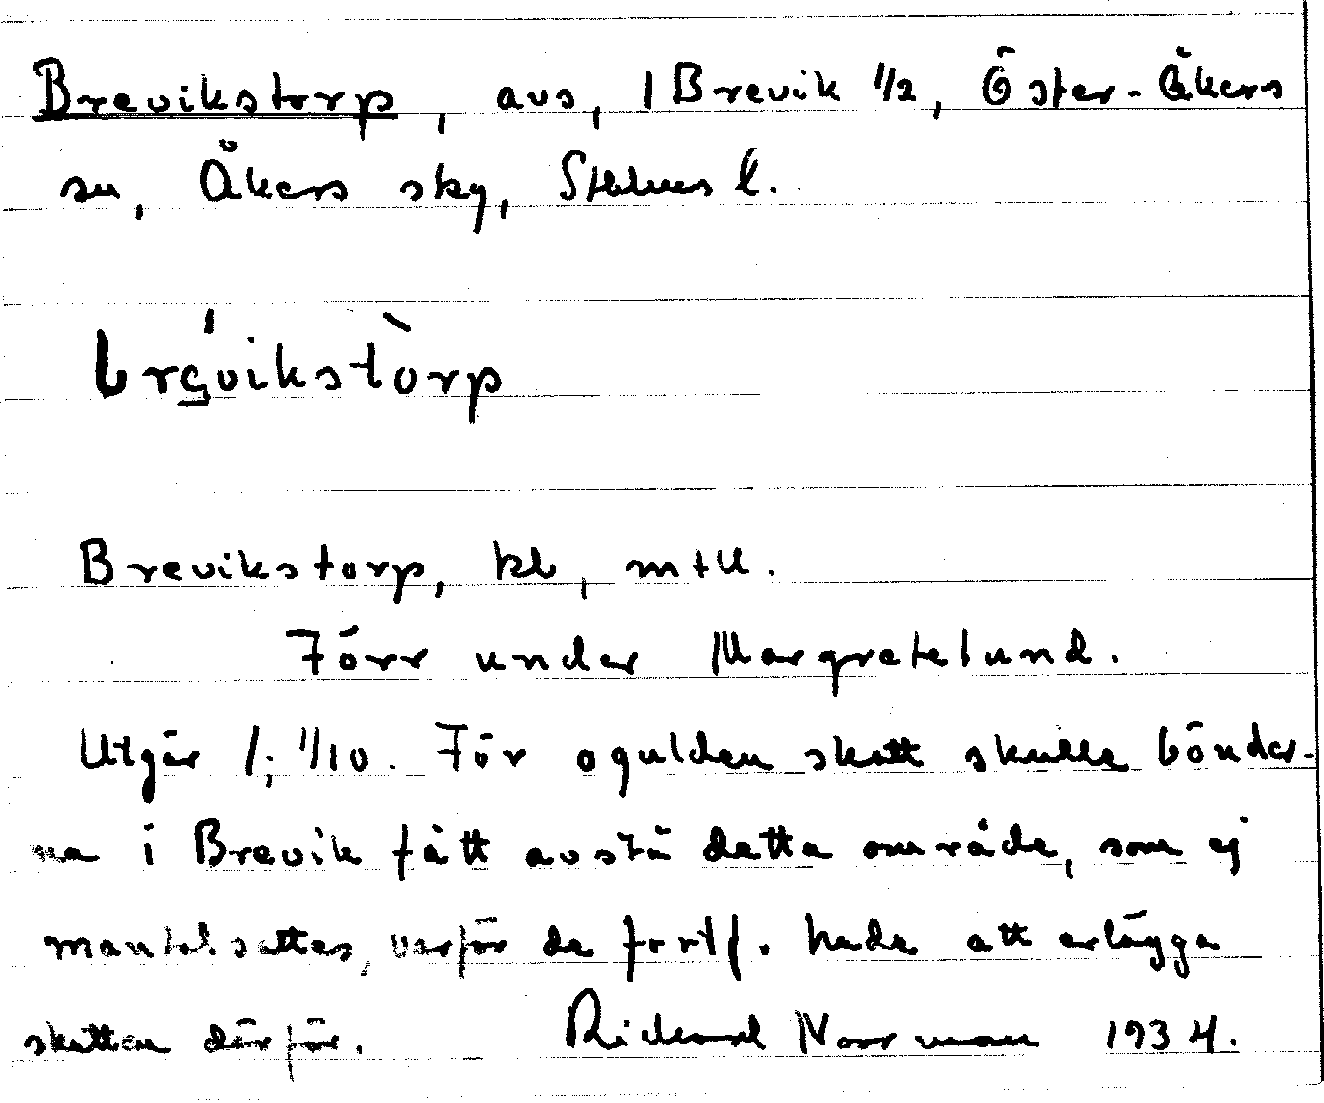 Brevikstorp, avs, 1 Brevik 1/2, Öster-Åkers
sn, Åkers sky, Sthlms l.
bre̲´vikstòrp
Brevikstorp, kl, mtll.
Förr under Margretelund.
Utgår 1; 1/10. För ogulden skatt skulle bönder-
na i Brevik fått avstå detta område, som ej
mantalsattes, varför de fortf. hade att erlägga
skatten därför. Rickard Norrman 1934.